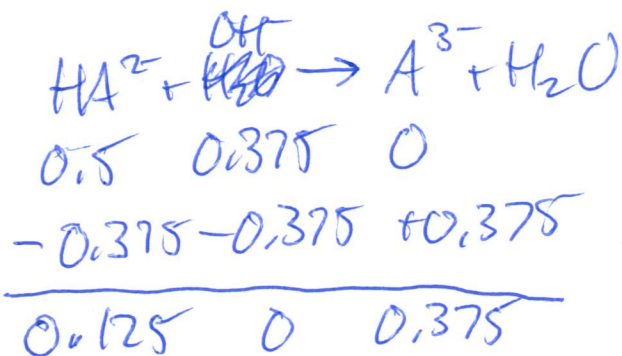 OH
HA²⁻ + → A³⁻ + H₂O
0.5 0.375 0
-0.375 -0.375 +0.375
0.125 0 0.375